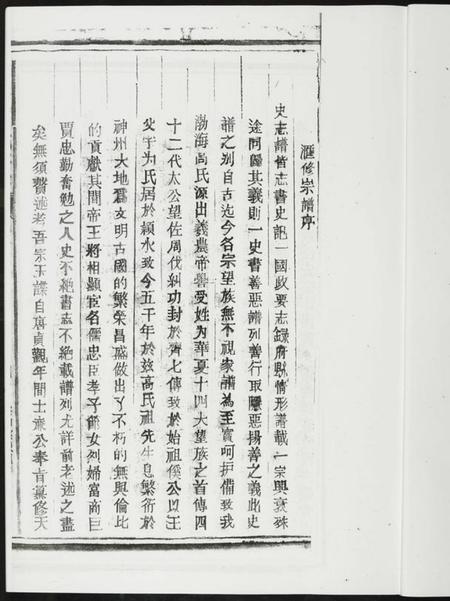 滙修崇譜序
史志譜皆志書史記一國政要志錄府縣情形譜載一宗興衰殊
途同歸其義則一史書善惡譜列善行取隱惡揚善之義此史
譜之別自古迄今名宗望族無不視家譜為至寶呵护備致我
渤海高氏源出羲農帝嚳受姓为華夏十四大望族之首傳四
十二代太公望佐周伐紂功封於齊七傳致於始祖傒公以王
父字为氏居於穎水致今五千年於玆高氏祖先生息繁衍於
神州大地爲文明古國的繁荣昌盛做出了不朽的無與倫比
的貢献其間帝王將相顯宦名儒忠臣孝子節女列婦富商巨
賈忠勤奮勉之人史不絶書志不絶載譜列尤詳前者述之盡
矣無須贅述者吾宗玉諜自唐貞觀年間士亷公奉旨纂修天